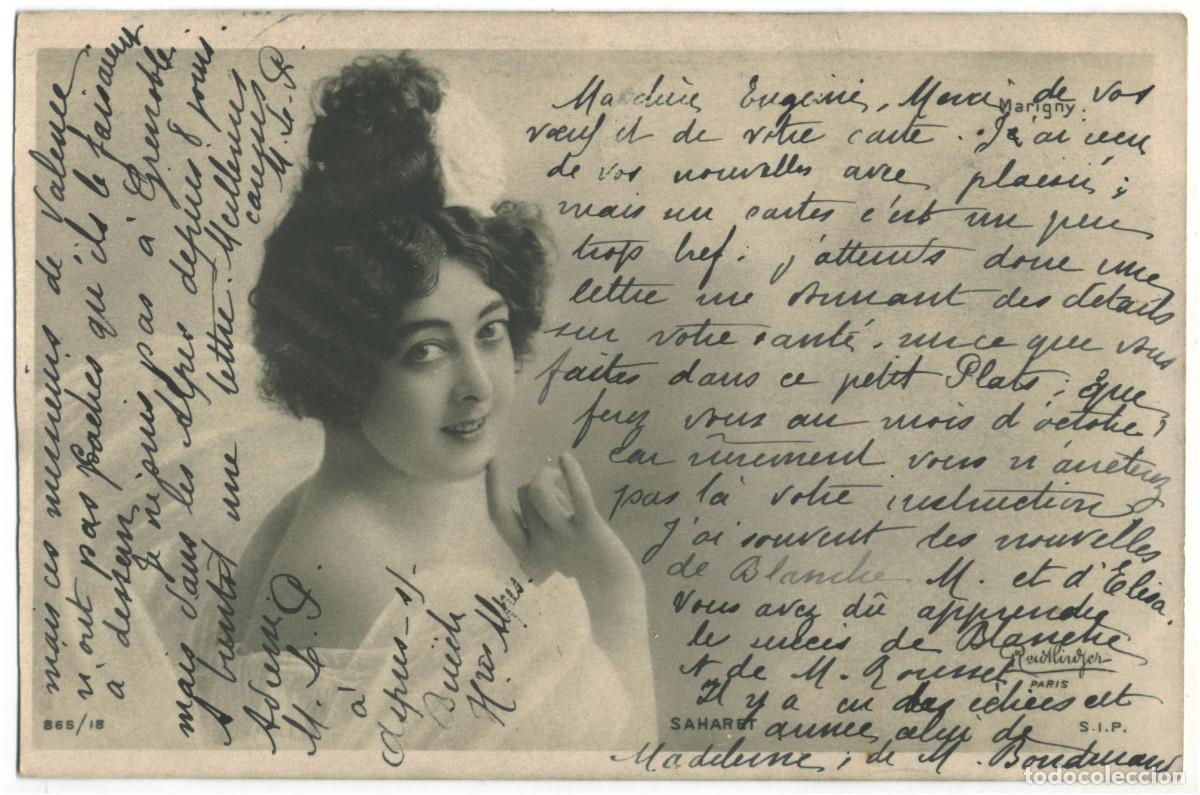 Ma chère Eugénie, Merci de vos
Marigny
vœux et de votre carte. J'ai reçu
de vos nouvelles avec plaisir;
mais un cartes c'est un peu
trop bref. j'attends donc une
lettre me donnant des détails
sur votre santé, sur ce que vous
faites dans ce petit Plats; que
ferez vous au mois d'octobre,
car sûrement vous n'arreterez
pas là votre instruction
J'ai souvent des nouvelles
de Blanche M. et d'Elisa.
Vous avez dû apprendre
le succès de Blanche
et de M. Rousset
Reutlinger
PARIS
Il y a eu des échecs cet
année, celui de
Madeleine, de M.
SAHARET
S.I.P.
865/18
mais ces messieurs de Valence
n'ont pas Poches qu'ils le faisaient
à dessein
Je ne suis pas à Grenoble
mais dans les Alpes depuis 8 jours.
A bientôt une lettre. Meilleures
caresses
M. L. P.
Adresse
M. L. P.
à
Aspres-s/
Buëch
Htes Alpes.
todocoleccion